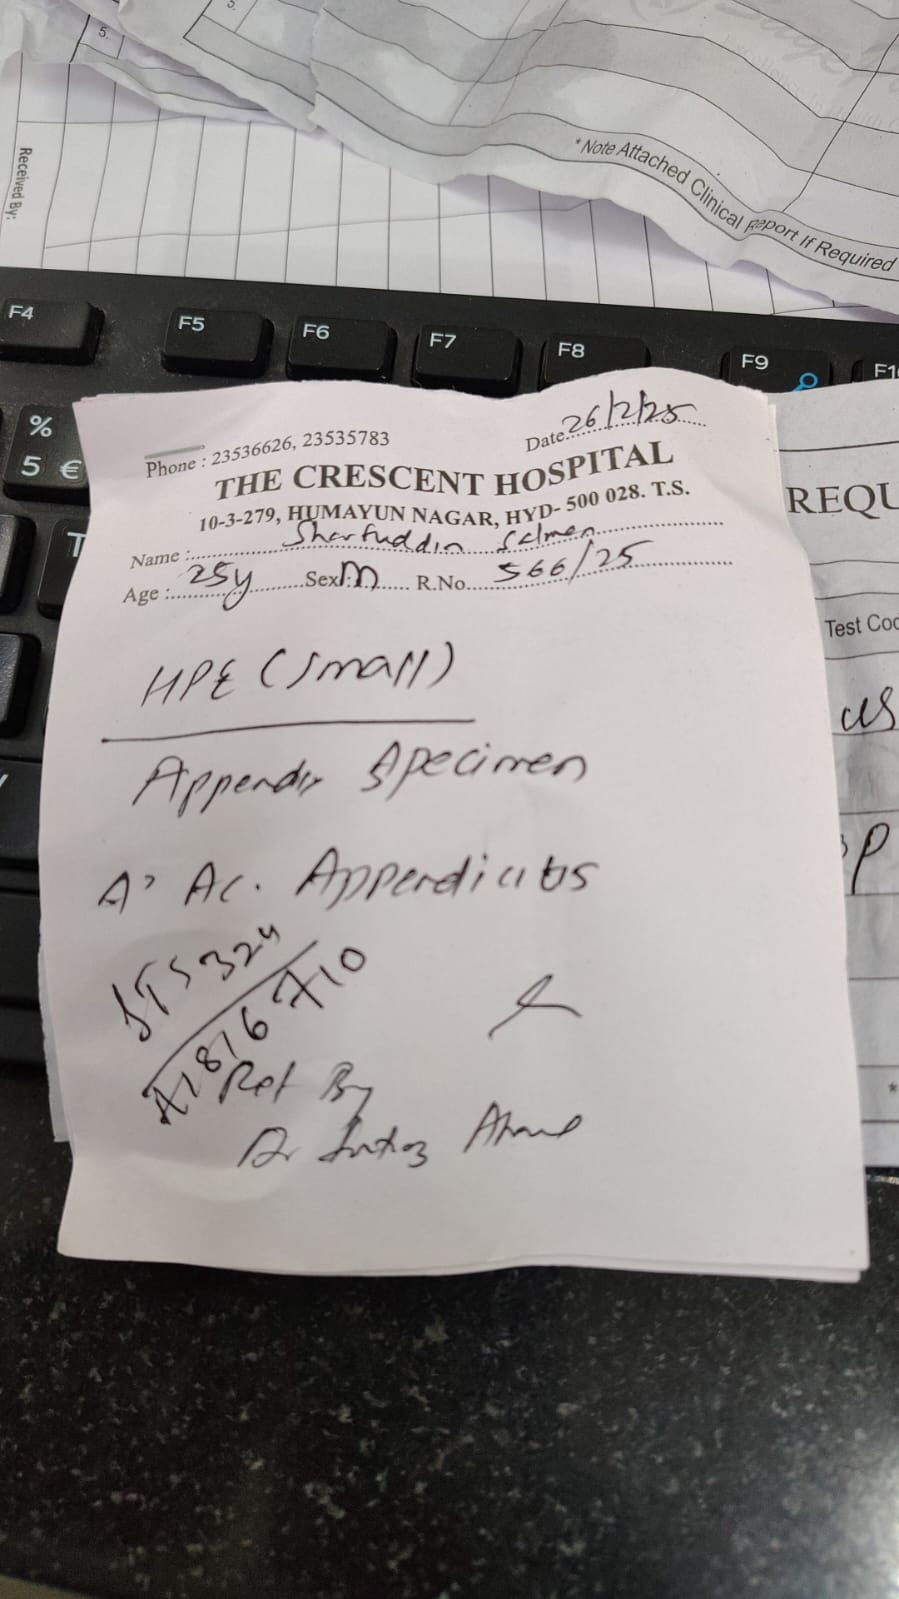 5.
5.
*Note Attached Clinical Report If Required
Received By:
F4 F5 F6 F7 F8 F9 F1
%
5 €
T
Phone : 23536626, 23535783
Date 26/2/25
THE CRESCENT HOSPITAL
10-3-279, HUMAYUN NAGAR, HYD- 500 028. T.S.
Name : Sharfuddin Salman
Age : 25y Sex M R.No. 566/25
HPE (small)
Appendix Specimen
Ac. Appendicitis
Ref By
Dr
REQU
Test Cod
us
P
*